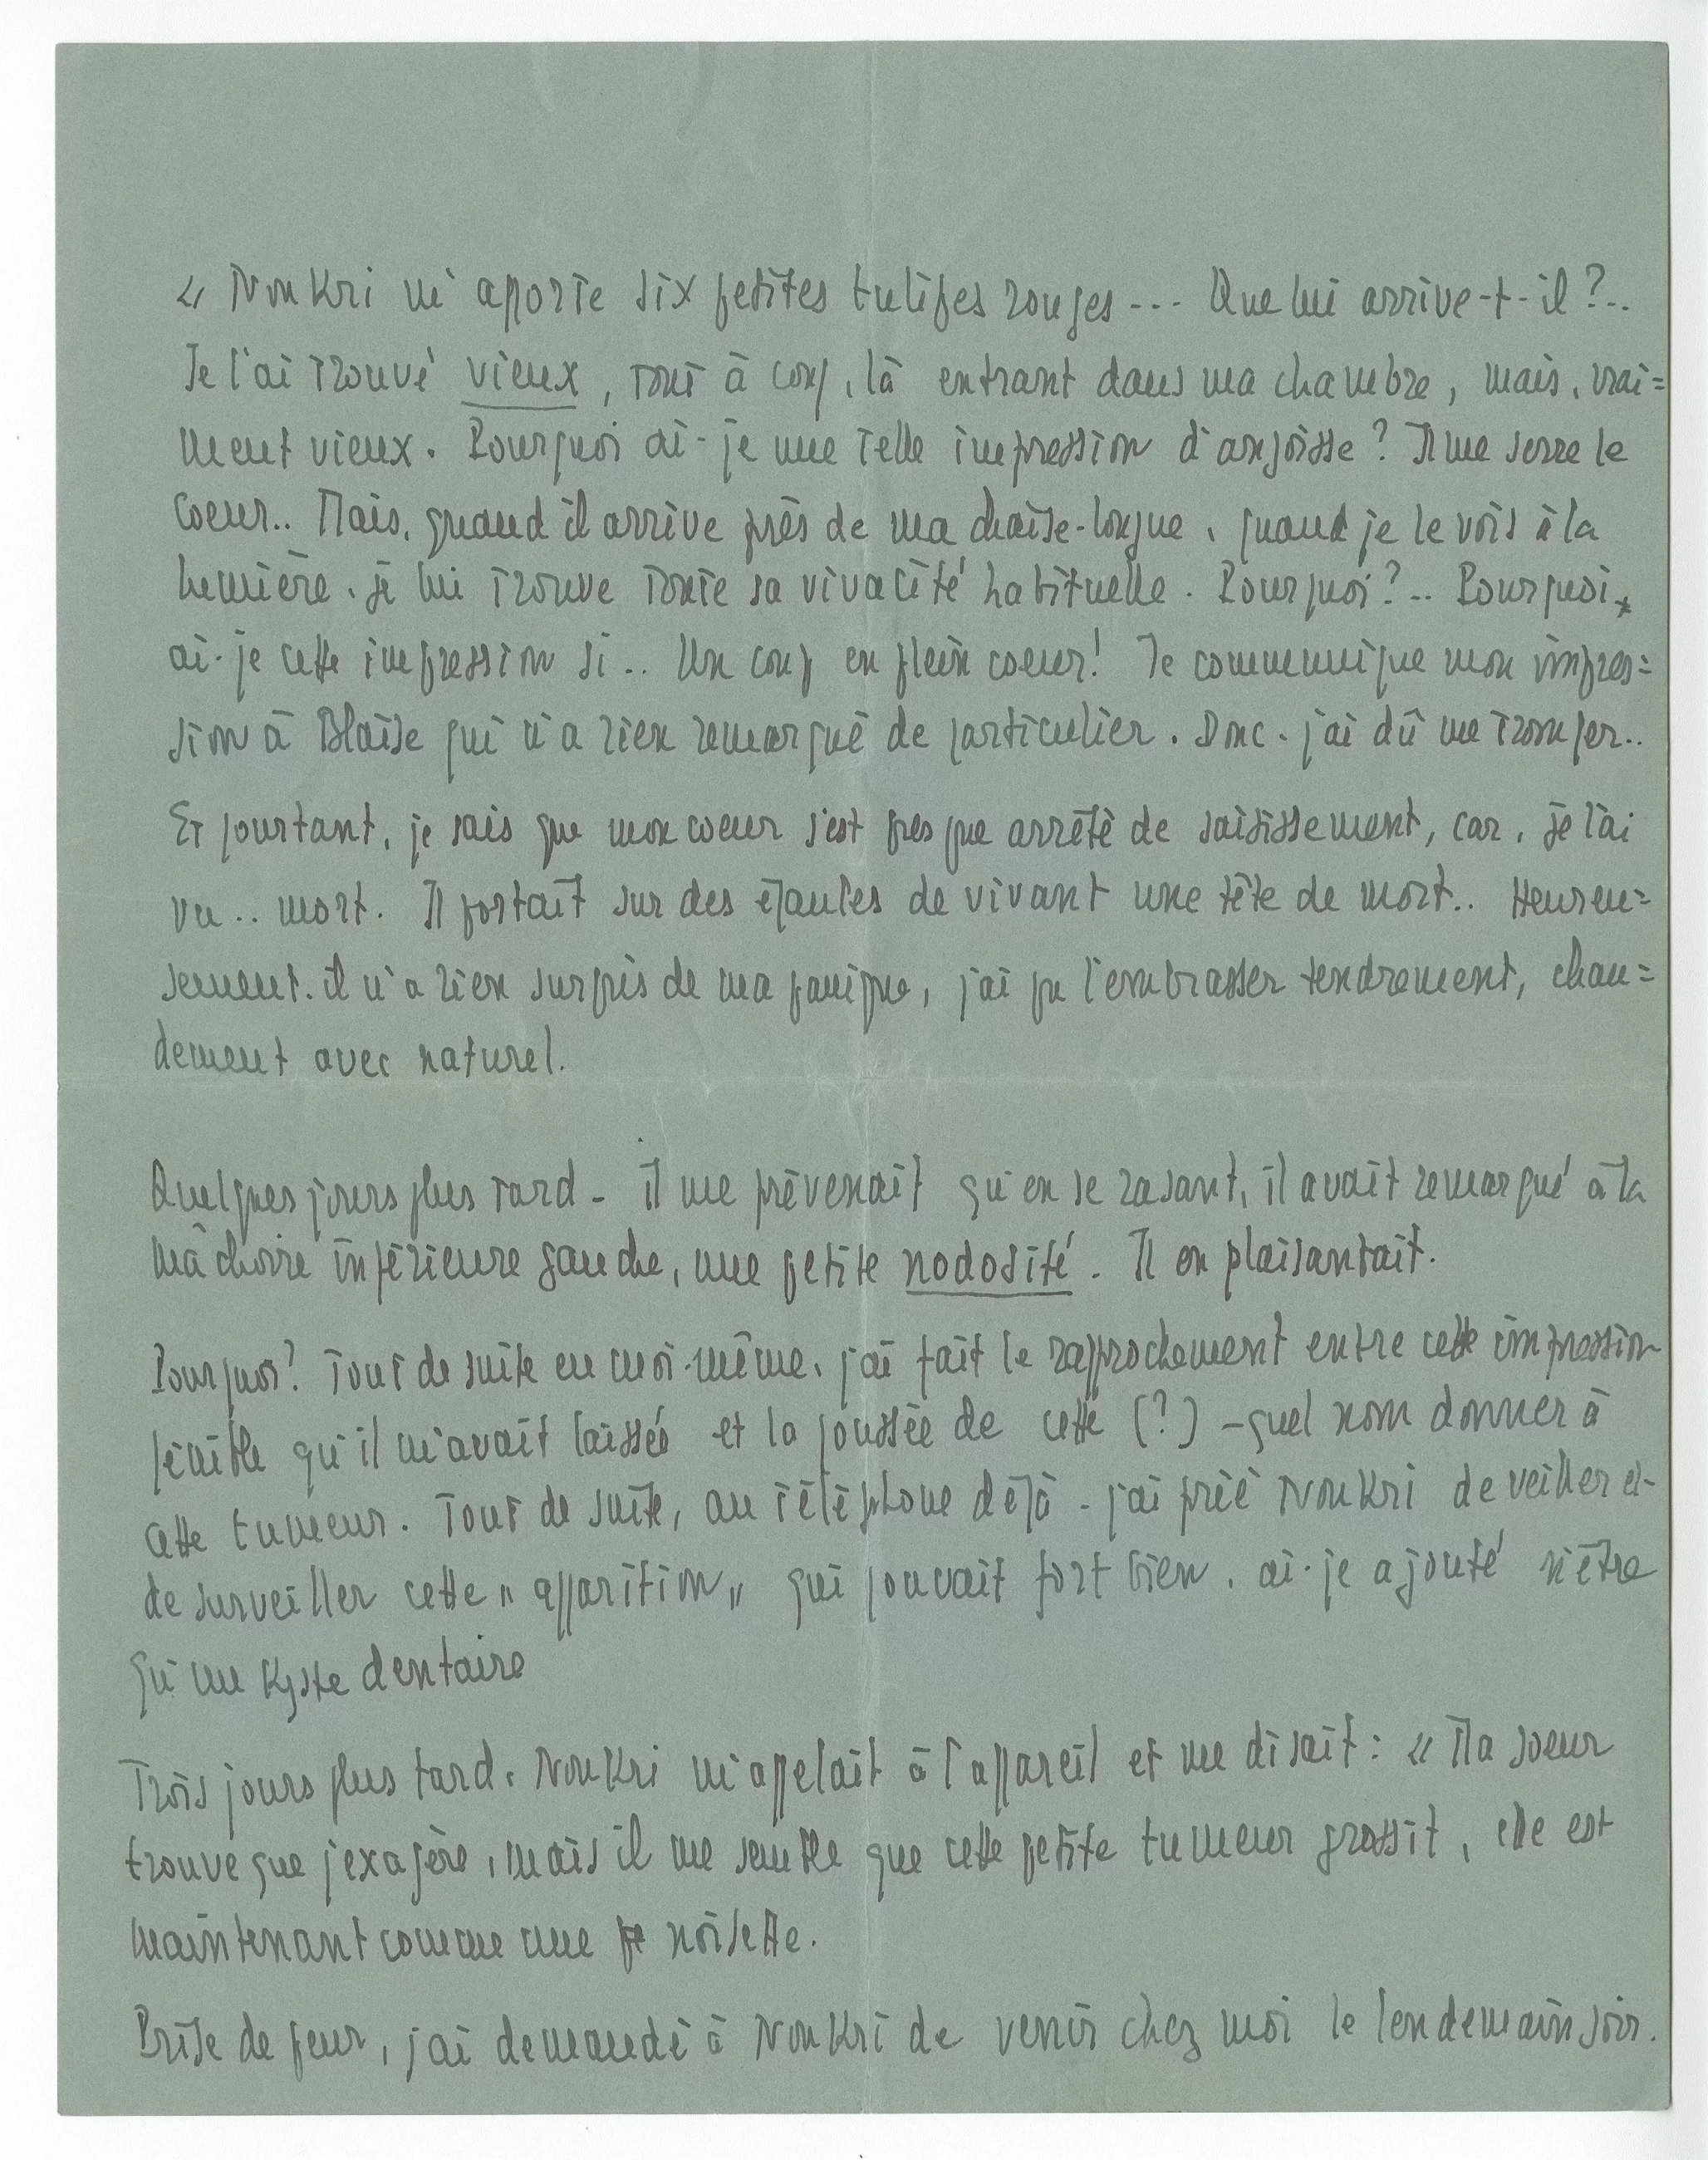 « NouKri m'apporte six petites tulipes rouges --- Que lui arrive-t-il ?..
Je l'ai trouvé vieux, tout à coup, là entrant dans ma chambre, mais, vrai=
ment vieux. Pourquoi ai-je une telle impression d'angoisse ? Il me serre le
coeur.. Mais, quand il arrive près de ma chaise-longue, quand je le vois à la
lumière, je lui trouve toute sa vivacité habituelle. Pourquoi ?.. Pourquoi,
ai-je cette impression si .. Un coup en plein coeur ! Je communique mon impres=
sion à Blaise qui n'a rien remarqué de particulier. Donc - j'ai dû me tromper..
Et pourtant, je sais que mon coeur s'est presque arrêté de saisissement, car, je l'ai
vu .. mort. Il portait sur des épaules de vivant une tête de mort.. Heureu=
sement, il n'a rien surpris de ma panique, j'ai pu l'embrasser tendrement, chau=
dement avec naturel.
Quelques jours plus tard - il me prévenait qu'en se rasant, il avait remarqué à la
mâchoire inférieure gauche, une petite nodosité. Il en plaisantait.
Pourquoi ? Tout de suite en moi-même, j'ai fait le rapprochement entre cette impression
pénible qu'il m'avait laissée et la poussée de cette (?) - quel nom donner à
cette tumeur. Tout de suite, au téléphone déjà - j'ai prié NouKri de veiller et
de surveiller cette " apparition " qui pouvait fort bien, ai-je ajouté n'être
qu'un Kyste dentaire
Trois jours plus tard, NouKri m'appelait à l'appareil et me disait : « Ma soeur
trouve que j'exagère, mais il me semble que cette petite tumeur grossit, elle est
maintenant comme une noisette.
Prise de peur, j'ai demandé à NouKri de venir chez moi le lendemain soir.